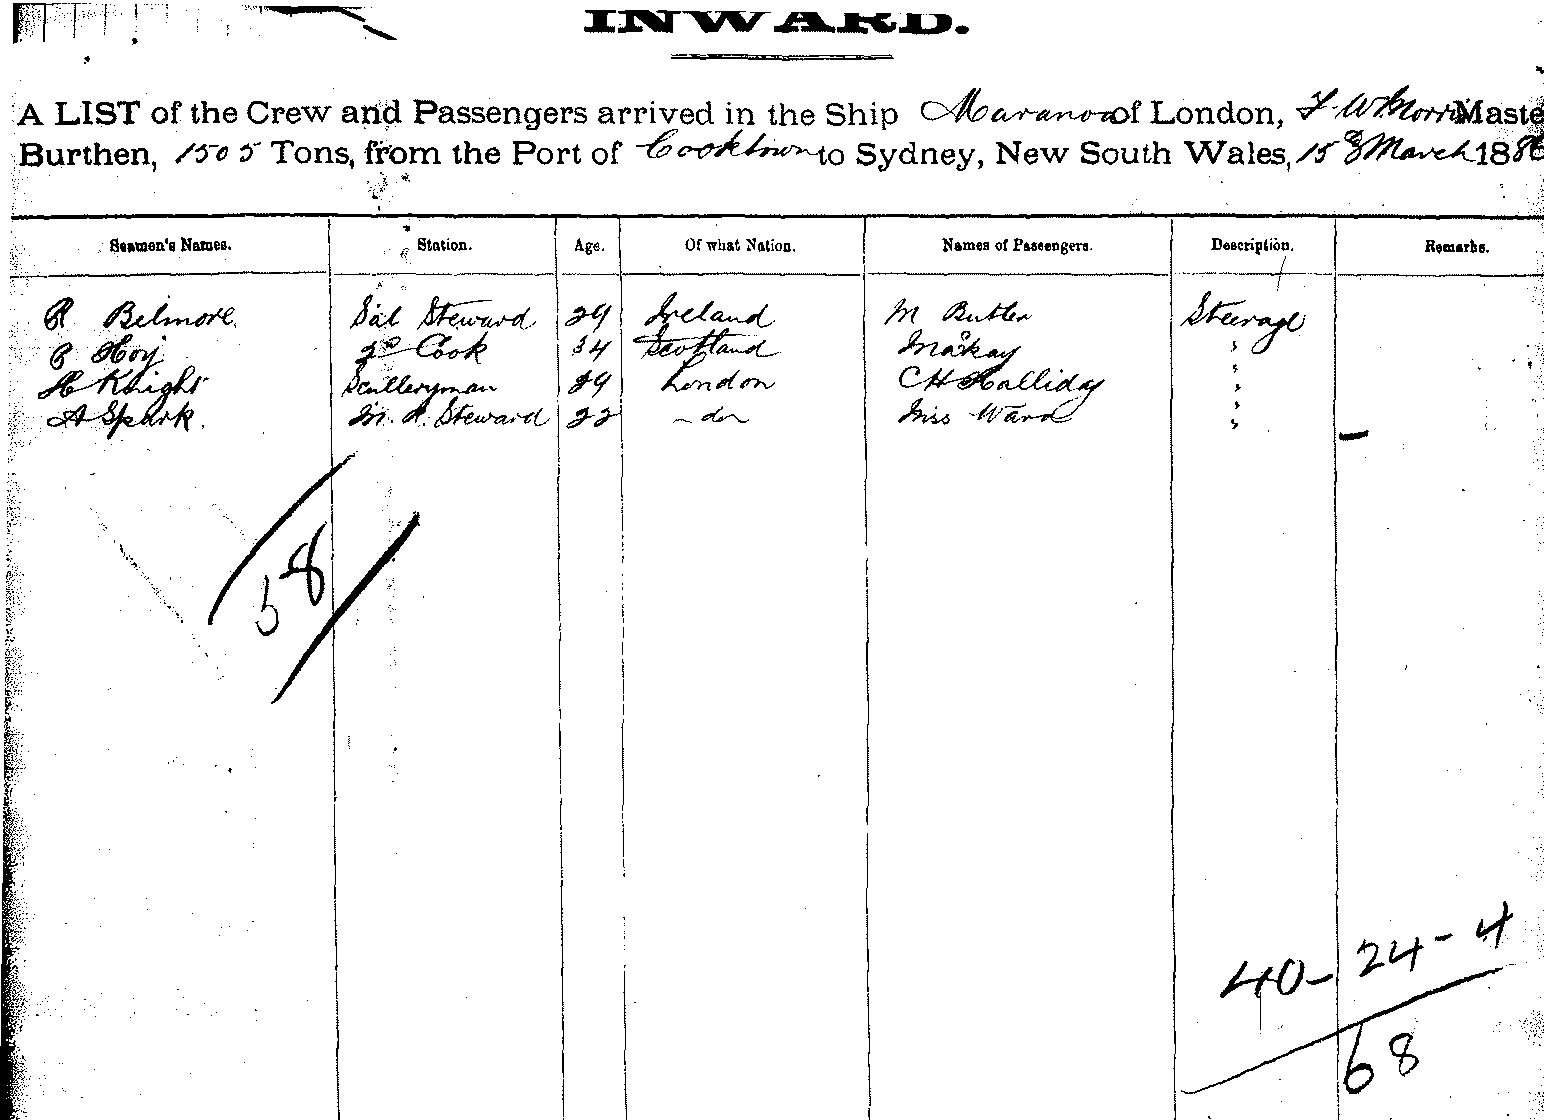 INWARD.
A LIST of the Crew and Passengers arrived in the Ship Maranoa of London, F. W. Morris Maste
Burthen, 1505 Tons, from the Port of Cooktown to Sydney, New South Wales, 15 March 188
Seamen's Names. Station. Age. Of what Nation. Names of Passengers. Description. Remarks.
R Belmore. Sal Steward 29 Ireland M Butler Steerage
P Hoy 2nd Cook 34 Scotland McKay "
H Knight Sculleryman 29 London C H Halliday "
A Spark. M. R. Steward 22 - do Miss Ward "
58
40 - 24 - 4
68